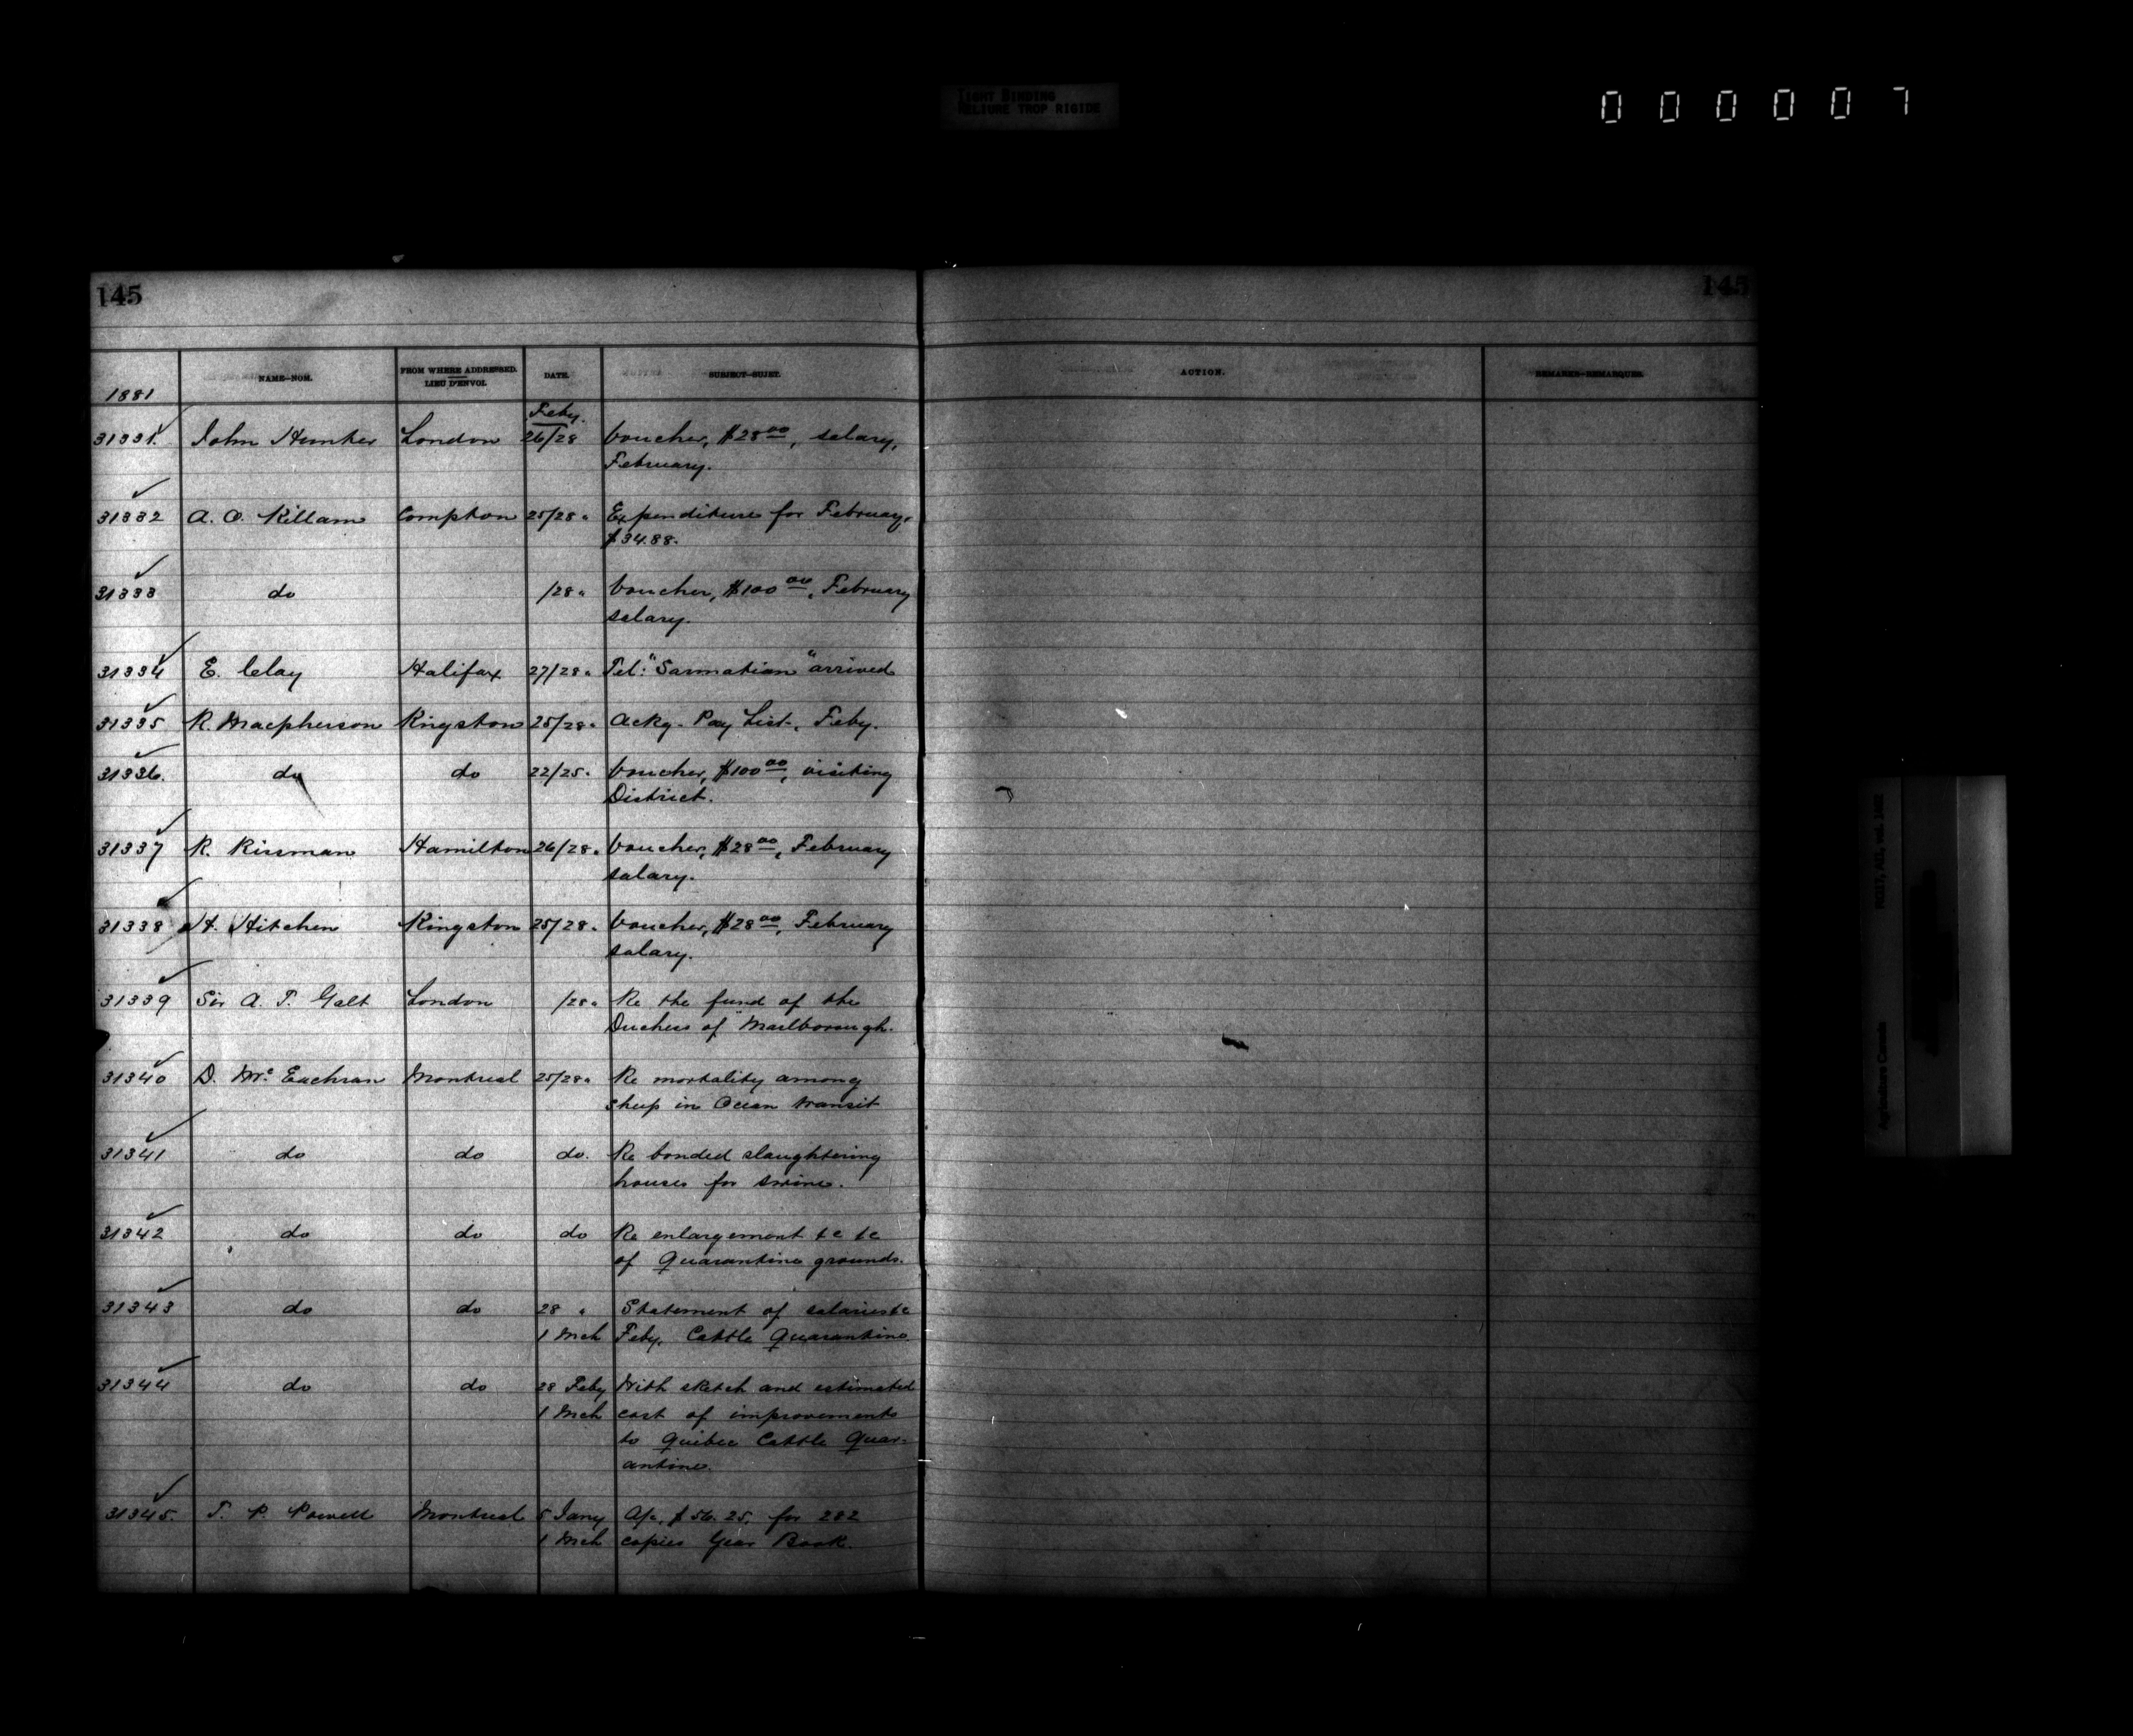 TIGHT BINDING
RELIURE TROP RIGIDE
000007
145
145
1881
NAME—NOM.
FROM WHERE ADDRESSED.
LIEU D'ENVOI.
DATE.
SUBJECT—SUJET.
ACTION.
REMARKS—REMARQUES.
Feby.
31331. John Hunter London 26/28 Voucher, $28 00, salary,
February.
31332 A. O. Killam Compton 25/28 " Expenditure for February,
$34.88.
31333 do /28 " Voucher, $100 00, February
salary.
31334 E. Clay Halifax 27/28 " Tel: "Sarmatian" arrived
31335 R. Macpherson Kingston 25/28 " Ackg. Pay List, Feby.
31336. do do 22/25 " Voucher, $100 00, visiting
District.
31337 R. Rissman Hamilton 26/28 " Voucher, $28 00, February
salary.
31338 H. Hitchen Kingston 25/28 " Voucher, $28 00, February
salary.
31339 Sir A. T. Galt London /28 " Re the fund of the
Duchess of Marlborough.
31340 D. McEachran Montreal 25/28 " Re mortality among
sheep in Ocean transit
31341 do do do. Re bonded slaughtering
houses for swine.
31342 do do do Re enlargement &c &c
of Quarantine grounds.
31343 do do 28 " Statement of salaries &c
1 Mch Feby. Cattle Quarantine.
31344 do do 28 Feby With sketch and estimated
1 Mch cost of improvements
to Quebec Cattle Quar-
antine.
31345. T. P. Powell Montreal 5 Jany A/c, $56.25, for 282
1 Mch copies Year Book.
Agriculture Canada
RG17, AII, vol.